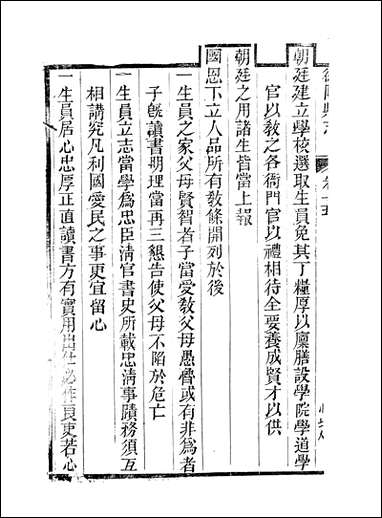 朝廷建立學校選取生員免其丁糧厚以廩膳設學院學道學
官以敎之各衙門官以禮相待全要養成賢才以供
朝廷之用諸生皆當上報
國恩下立人品所有敎條開列於後
一生員之家父母賢智者子當受敎父母愚魯或有非爲者
子旣讀書明理當再三懇告使父母不陷於危亡
一生員立志當學爲忠臣淸官書史所載忠淸事蹟務須互
相講究凡利國愛民之事更宜留心
一生員居心忠厚正直讀書方有實用出仕必作良吏若心